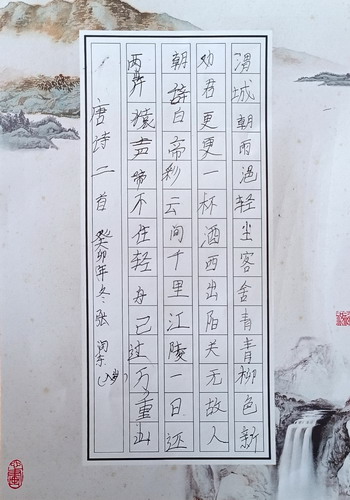 渭城朝雨浥轻尘客舍青青柳色新
劝君更更一杯酒西出阳关无故人
朝辞白帝彩云间千里江陵一日还
两岸猿声啼不住轻舟已过万重山
唐诗二首 癸卯年冬 张